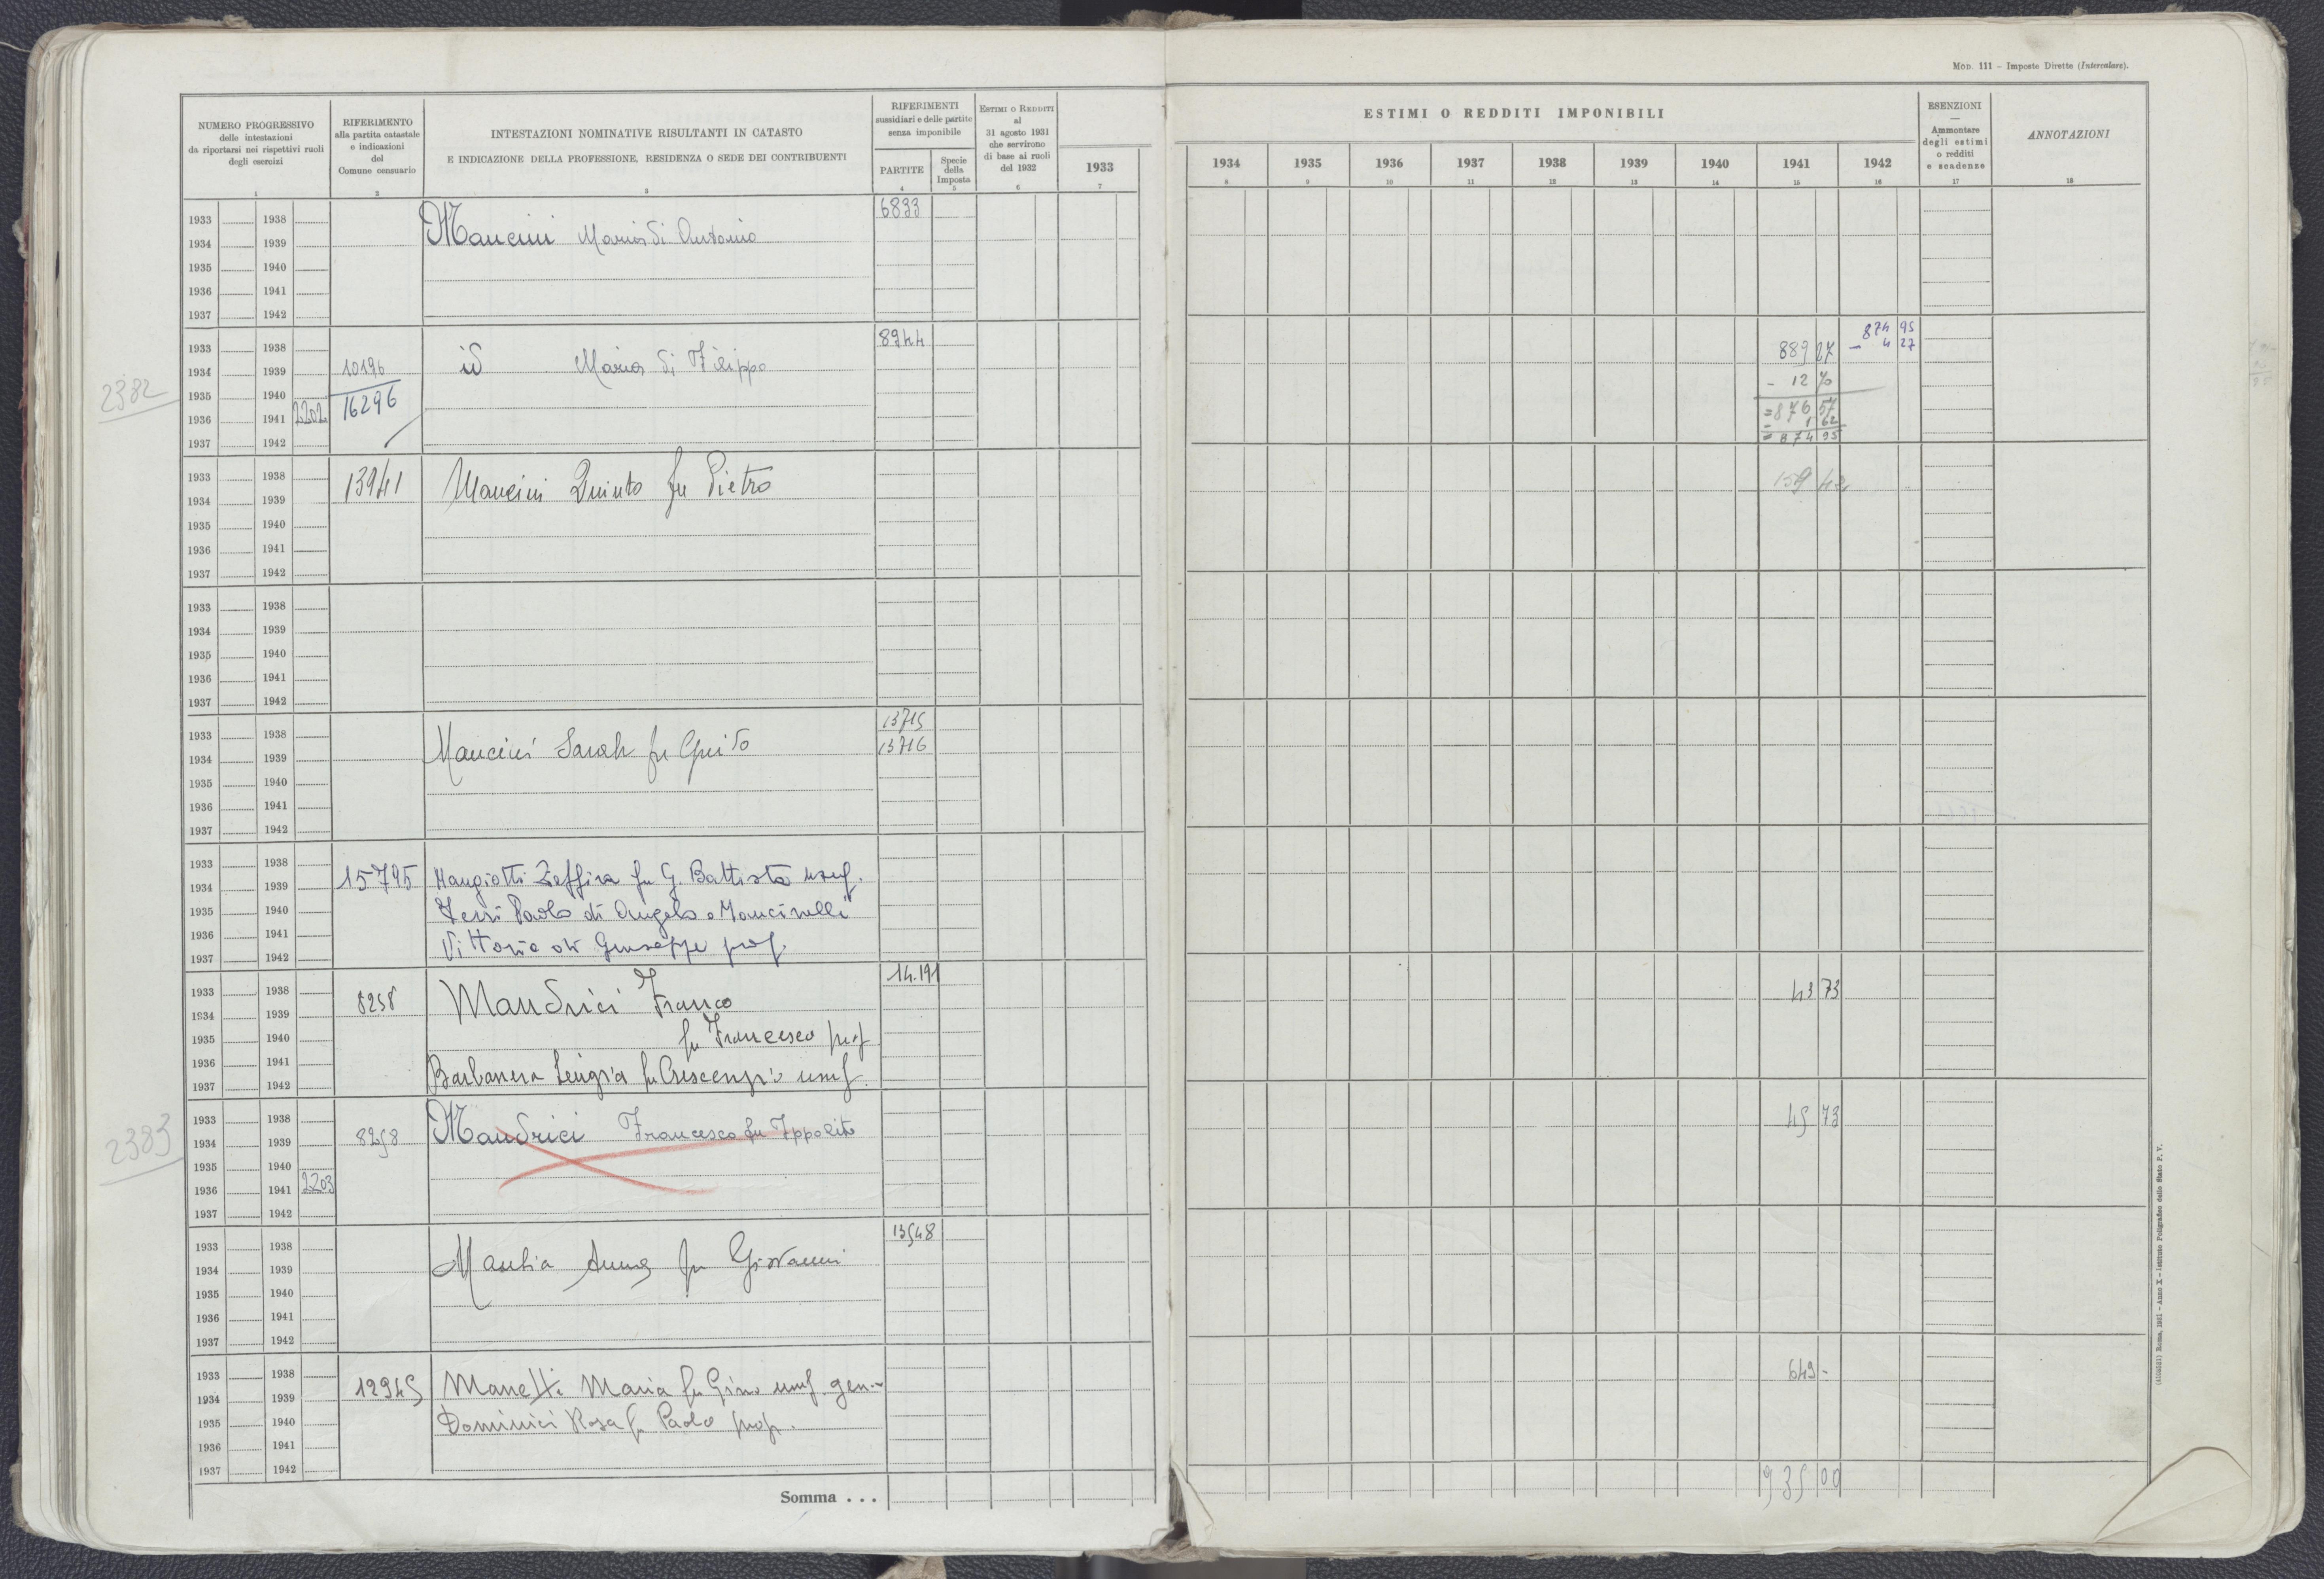 MOD. 111 – Imposte Dirette (Intercalare).
NUMERO PROGRESSIVO
delle intestazioni
da riportarsi nei rispettivi ruoli
degli esercizi
1
RIFERIMENTO
alla partita catastale
e indicazioni
del
Comune censuario
2
INTESTAZIONI NOMINATIVE RISULTANTI IN CATASTO
E INDICAZIONE DELLA PROFESSIONE, RESIDENZA O SEDE DEI CONTRIBUENTI
3
RIFERIMENTI
sussidiari e delle partite
senza imponibile
PARTITE
4
Specie
della
Imposta
5
ESTIMI O REDDITI
al
31 agosto 1931
che servirono
di base ai ruoli
del 1932
6
1933
7
ESTIMI O REDDITI IMPONIBILI
1934 1935 1936 1937 1938 1939 1940 1941 1942
8 9 10 11 12 13 14 15 16
ESENZIONI
—
Ammontare
degli estimi
o redditi
e scadenze
17
ANNOTAZIONI
18
6833
1933 1938
Mancini Maria di Antonio
1934 1939
1935 1940
1936 1941
1937 1942
8944 874 95
1933 1938 889 27 – 4 27
1934 1939 10196 id Maria di Filippo
2382 1935 1940 16296 – 12 70
1936 1941 2202 = 876 57
– 1 62
1937 1942 = 874 95
1933 1938 13941 Mancini Quinto fu Pietro 159 42
1934 1939
1935 1940
1936 1941
1937 1942
1933 1938
1934 1939
1935 1940
1936 1941
1937 1942
13715
1933 1938 Mancini Sarah fu Guido 13716
1934 1939
1935 1940
1936 1941
1937 1942
1933 1938
1934 1939 15795 Mangiotti Zeffira fu G. Battista usuf.
1935 1940 Paolo di Angelo e Mancinelli
1936 1941 Vittoria di Giuseppe prop.
1937 1942
14.191
1933 1938 8258 Mandrici Franco 43 73
1934 1939
1935 1940 fu Francesco prop
1936 1941
1937 1942 Barbanera fu Crescenzio usuf.
1933 1938 45 73
2383 1934 1939 8258 Mandrici Francesco fu Ippolito
1935 1940
1936 1941 2203
1937 1942
13548
1933 1938
1934 1939 Anna fu Giovanni
1935 1940
1936 1941
1937 1942
1933 1938 649 –
1934 1939 12945 Manetti Maria fu Gino usuf. gen.
1935 1940 Dominici Rosa fu Paolo prop.
1936 1941
1937 1942
Somma . . . 935 00
(4105021) Roma, 1931 – Anno X – Istituto Poligrafico dello Stato P. V.